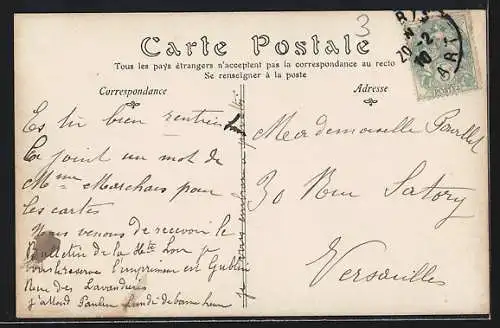 3
Carte Postale
Tous les pays étrangers n'acceptent pas la correspondance au recto
Se renseigner à la poste
Correspondance
Adresse
Es tu bien rentrée
Ci joint un mot de
Mme Marchais pour
les cartes
Nous venons de recevoir le
Bulletin de la Hte Loire je
l'imprimeur en
Rue des Lavandières
j'attend Pauline Lundi de bonne heure
je
Mademoiselle
30 Rue Satory
Versailles